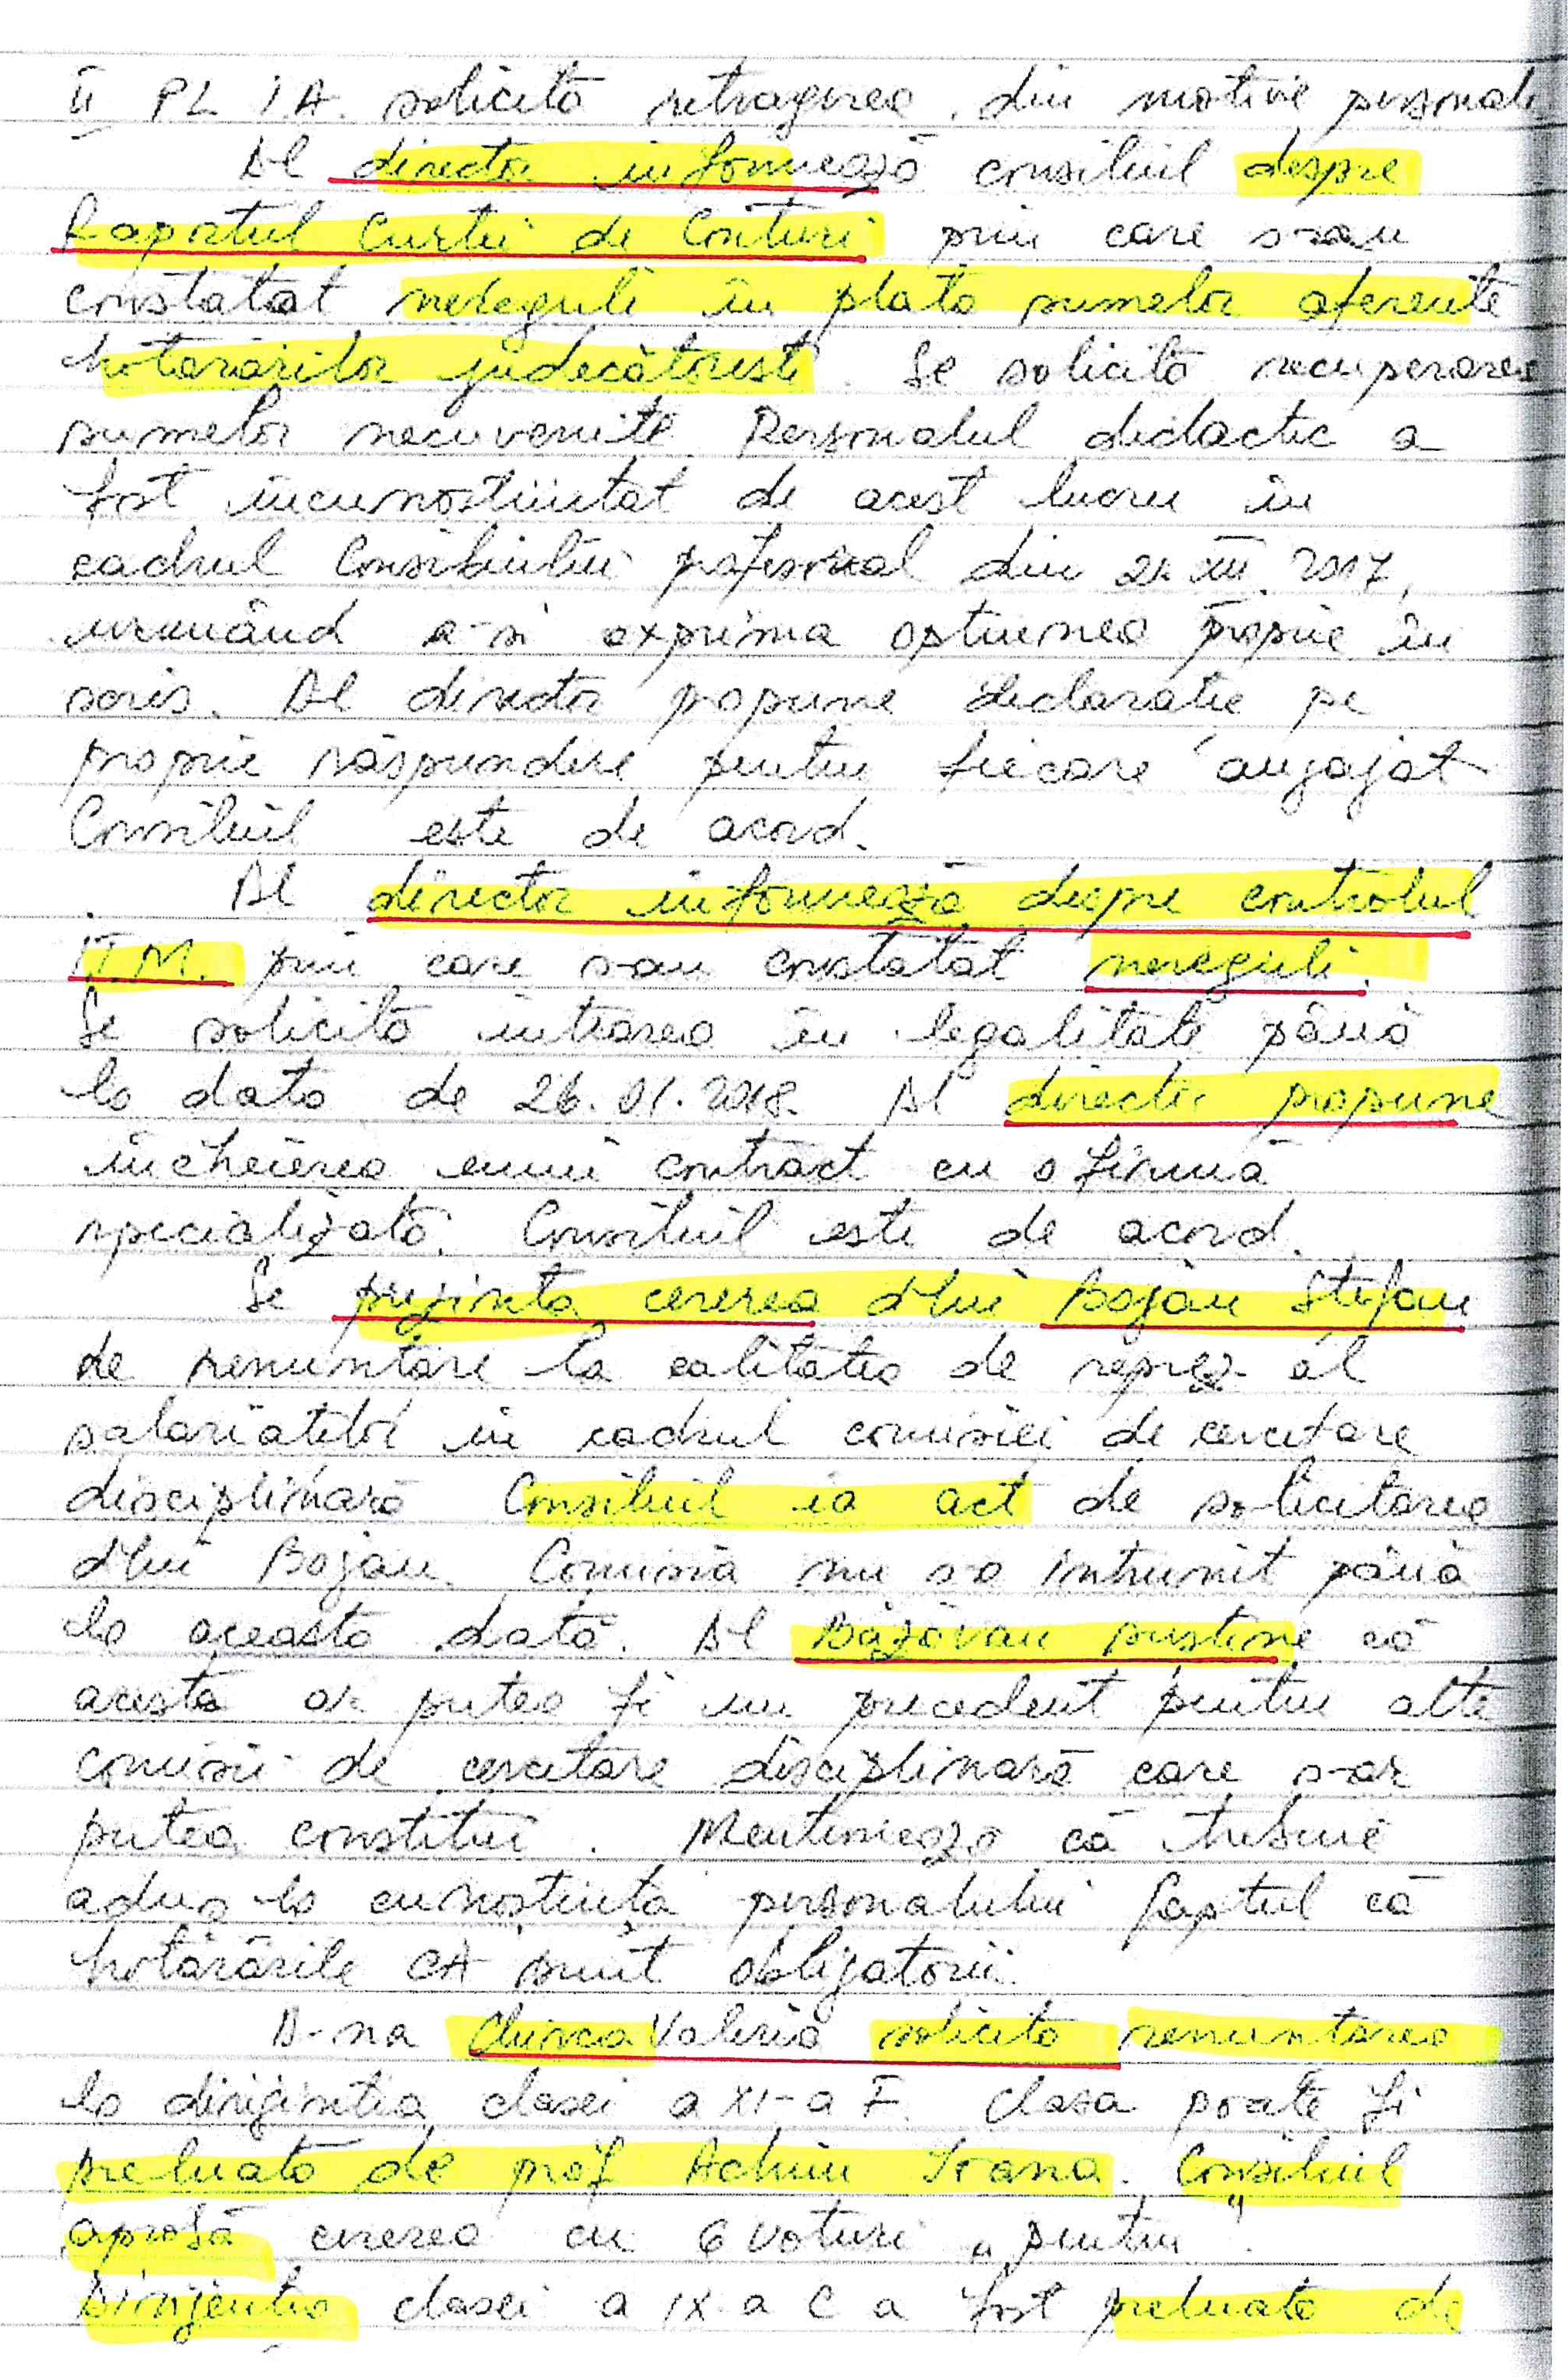 II PL IA. solicită retragerea din motive personale
Dl director informează consiliul despre
Raportul Curtii de Conturi prin care s-au
constatat nereguli în plata sumelor aferente
hotărârilor judecătoresti. Se solicită recuperarea
sumelor necuvenite. Personalul didactic a
fost încunostiintat de acest lucru în
cadrul Consiliului profesoral din 21.XII.2017,
urmând a-si exprima optiunea proprie în
scris. Dl director propune declaratie pe
proprie răspundere pentru fiecare angajat
Consiliul este de acord.
Dl director informează despre controlul
ITM. prin care s-au constatat nereguli.
Se solicită intrarea în legalitate până
la data de 26.01.2018. Dl director propune
încheierea unui contract cu o firmă
specializată. Consiliul este de acord.
Se prezintă cererea d-lui Bojan Stefan
de renuntare la calitatea de reprez. al
salariatilor în cadrul comisiei de cercetare
disciplinară Consiliul ia act de solicitarea
d-lui Bojan. Comisia nu s-a întrunit până
la această dată. Dl Băzăvan sustine că
acesta ar putea fi un precedent pentru alte
comisii de cercetare disciplinară care s-ar
putea constitui. Mentionează că trebuie
adus la cunostiinta personalului faptul că
hotărârile CA sunt obligatorii.
D-na Chircea Valeria solicită renuntarea
la dirigintia clasei a XI-a F. Clasa poate fi
preluată de prof Achim Ioana. Consiliul
aprobă cererea cu 6 voturi „pentru".
Dirigentia clasei a IX-a C a fost preluată de